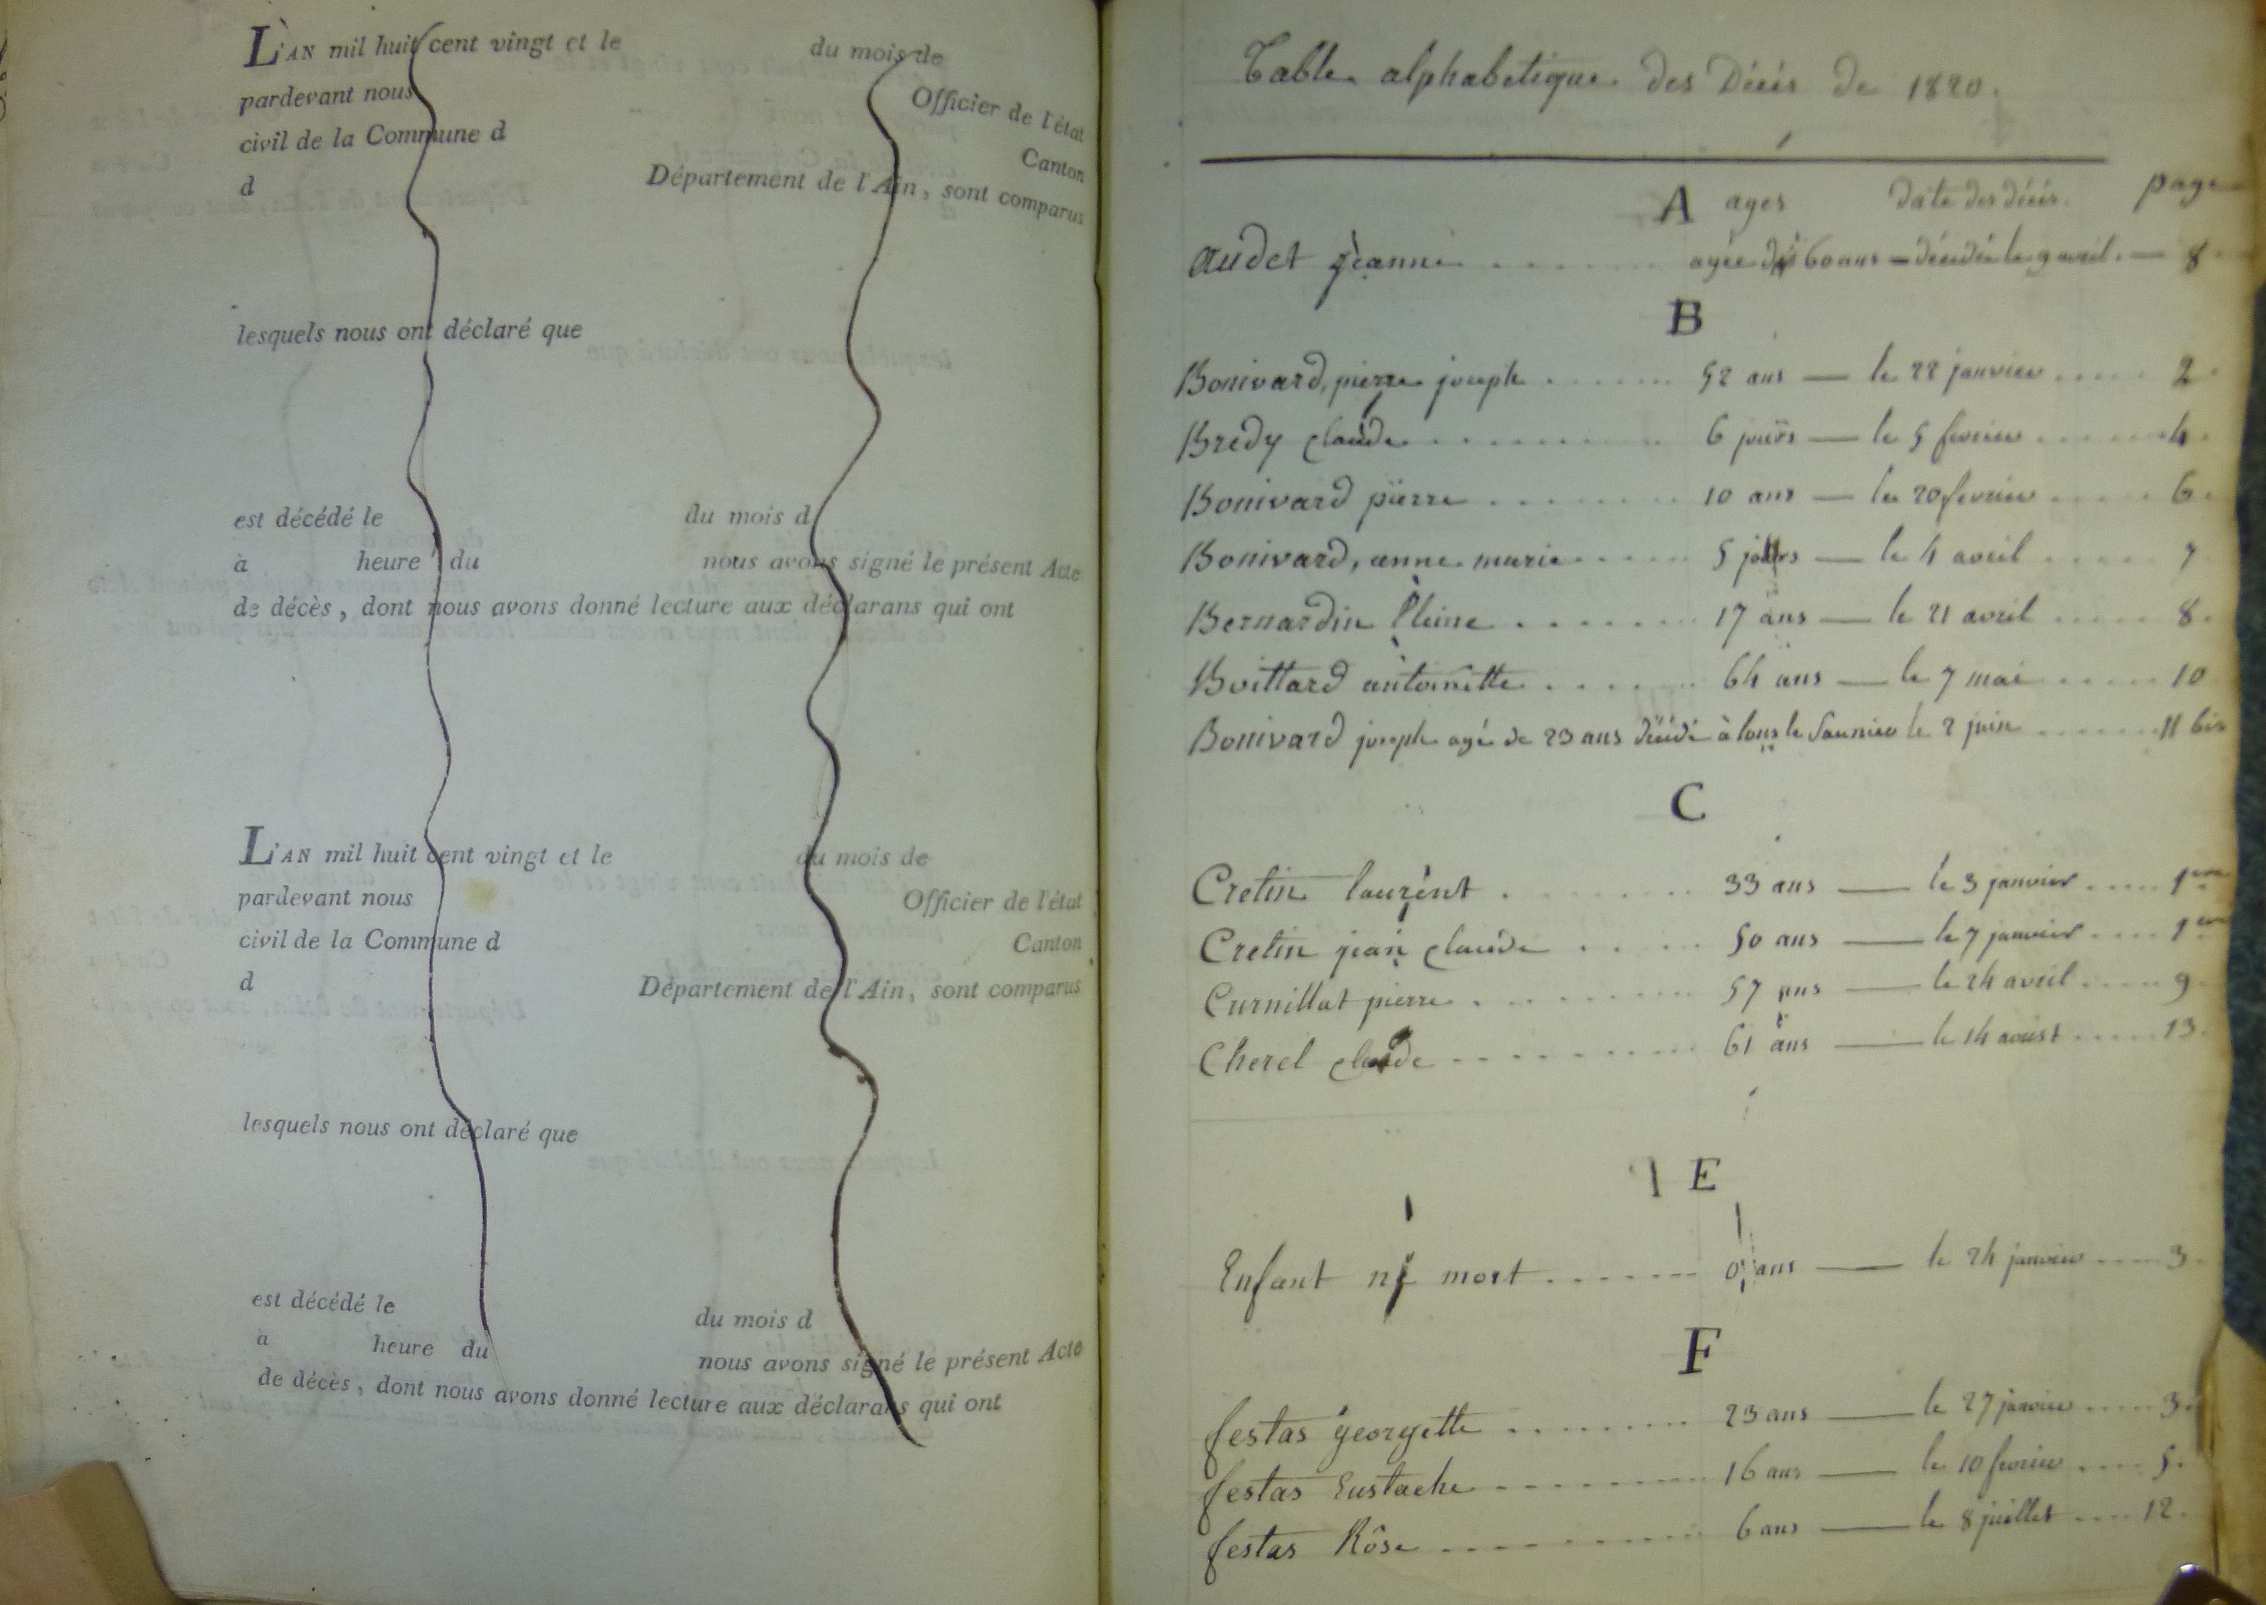 L'AN mil huit cent vingt et le du mois de
pardevant nous Officier de l'état
civil de la Commune d Canton
d Département de l'Ain, sont comparus
lesquels nous ont déclaré que
est décédé le du mois d
à heure du nous avons signé le présent Acte
de décès, dont nous avons donné lecture aux déclarans qui ont
L'AN mil huit cent vingt et le du mois de
pardevant nous Officier de l'état
civil de la Commune d Canton
d Département de l'Ain, sont comparus
lesquels nous ont déclaré que
est décédé le du mois d
à heure du nous avons signé le présent Acte
de décès, dont nous avons donné lecture aux déclarans qui ont
Table alphabetique des Décés de 1820.
A ages date des décés. page
audet jeanne ....... agée de 60 ans — décédée le 9 avril. — 8
B
Bonivard, pierre joseph ....... 52 ans — le 22 janvier ..... 2
Bredy claude ....... 6 jours — le 5 fevrier ..... 4
Bonivard pierre ....... 10 ans — le 20 fevrier ..... 6
Bonivard, anne marie ....... 5 jours — le 4 avril ..... 7
Bernardin ....... 17 ans — le 21 avril ..... 8
Boittard antoinette ....... 64 ans — le 7 mai ..... 10
Bonivard joseph agé de 23 ans décédé à lons le Saunier le 2 juin ..... 11 bis
C
Cretin laurent ....... 33 ans — le 3 janvier ..... 1ere
Cretin jean claude ..... 50 ans — le 7 janvier ..... 1ere
Curnillat pierre ....... 57 ans — le 24 avril ..... 9
Cherel claude ....... 61 ans — le 14 aoust ..... 13
E
Enfant né mort ....... 0, ans — le 24 janvier ..... 3
F
festas georgette ....... 23 ans — le 27 janvier ..... 3
festas Eustache ....... 16 ans — le 10 fevrier ..... 5
festas Rôse ....... 6 ans — le 8 juillet ..... 12